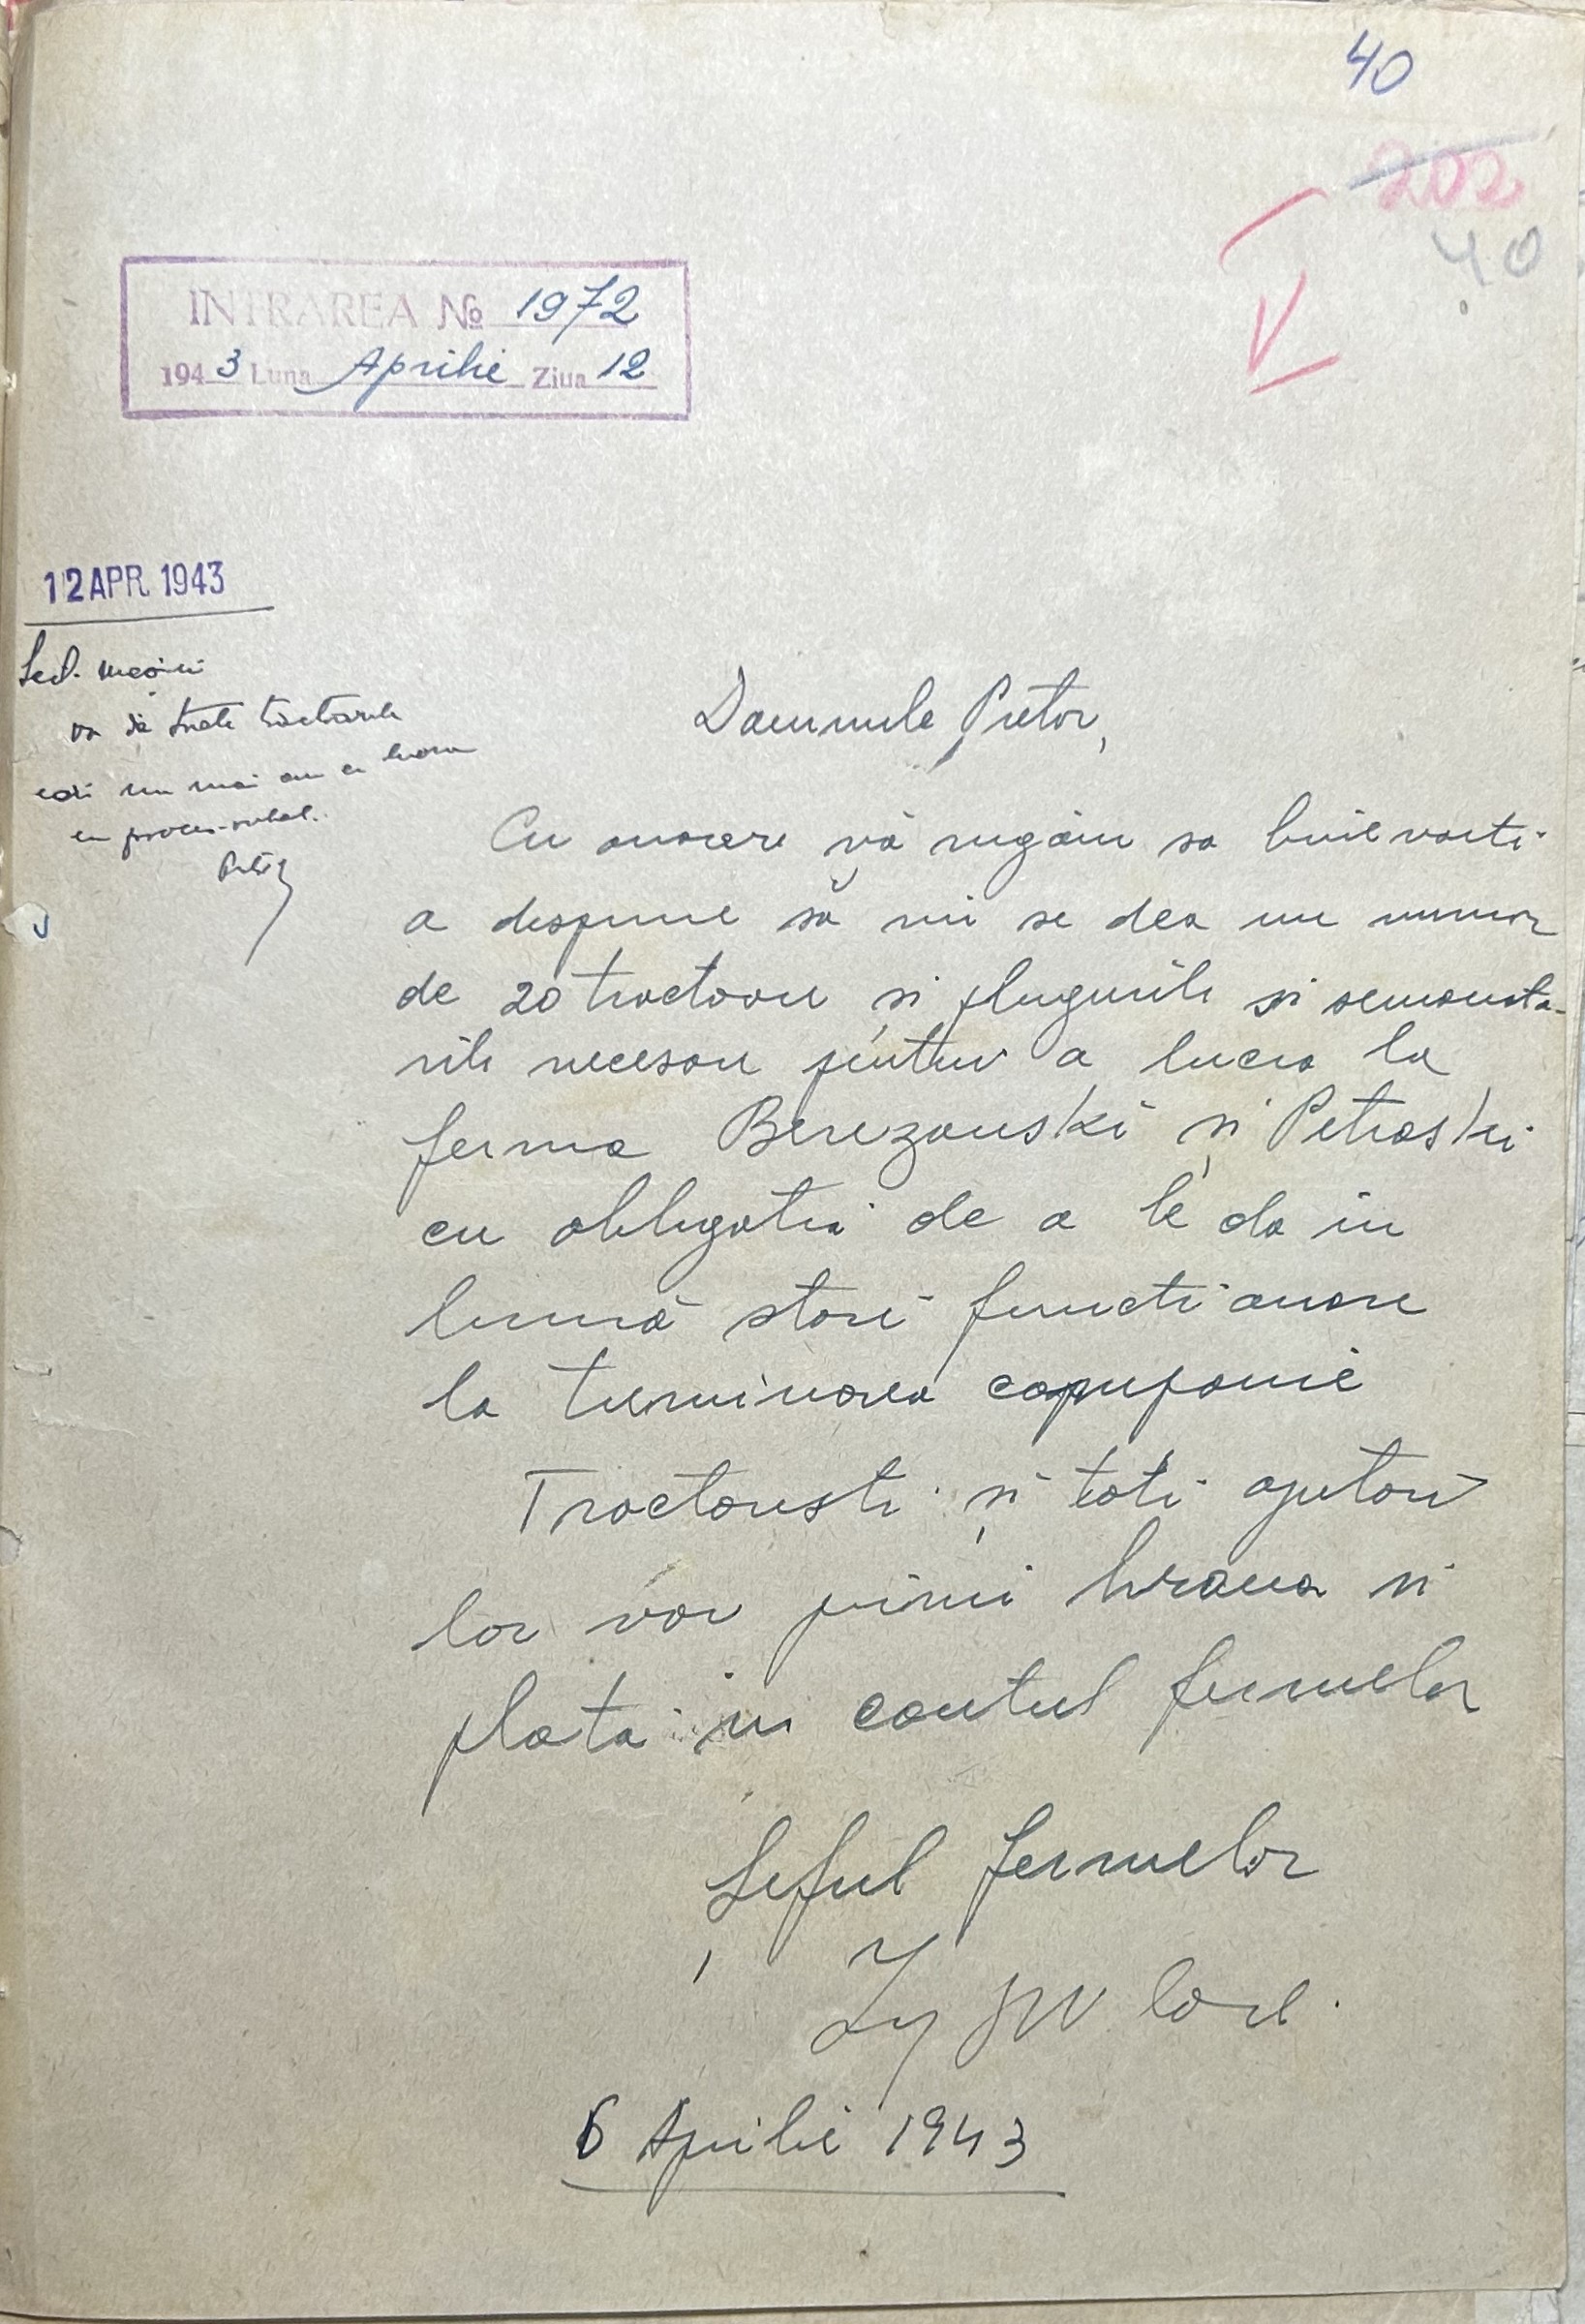 40
202
40
INTRAREA № 1972
1943 Luna Aprilie Ziua 12
12 APR. 1943
va da toate tractoarele
cari nu mai au ce lucra
cu proces-verbal.
Domnule Pretor,
Cu onoare vă rugăm sa binevoiti
a dispune să mi se dea un numar
de 20 tractoare și plugurile si semanato-
rile necesare pentru a lucra la
ferma Berezovski și Petroski
cu obligatia de a le da in
bună stare functionare
la terminarea campanie
Tractoristi și toti ajutorii
lor vor primi hrana si
plata in contul fermelor
Șeful fermelor
6 Aprilie 1943